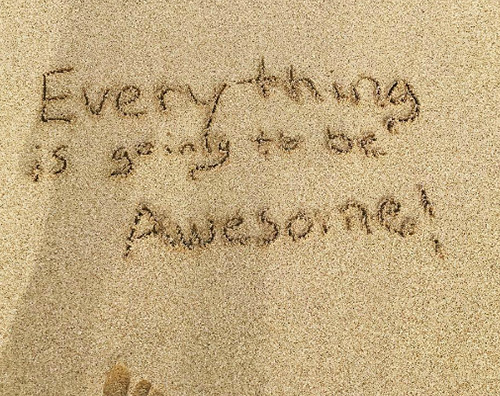 Everything
is going to be
Awesome!